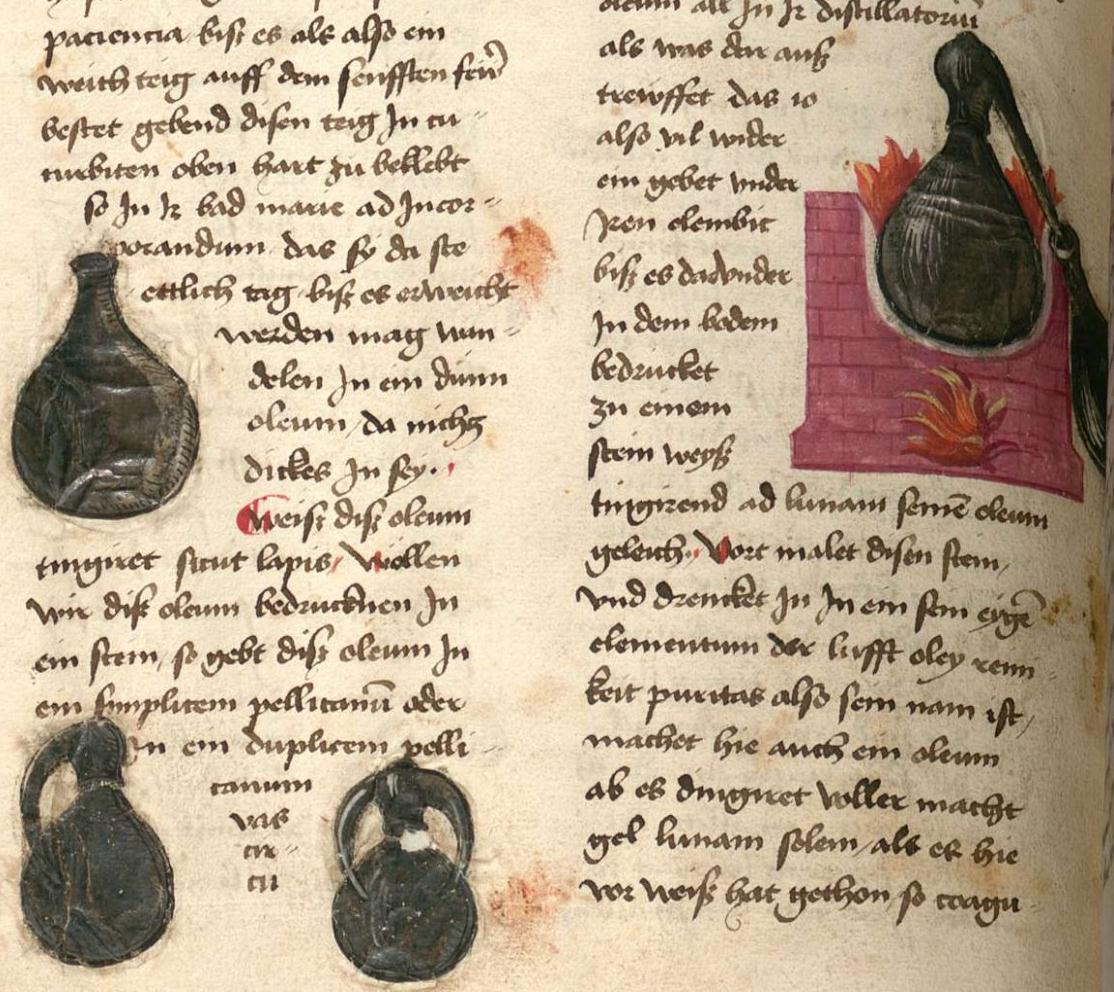 paciencia bisz es als also ein
weich teig auff dem senfften feur̄
bestet gebend disen teig In cu-
curbiten oben hart zu beklebt
so In Ir bad marie ad Incor-
porandum das sy da ste
ettlich tag bisz es erweicht
werden mag wan-
delen In ein dünn
oleum da nichz
dickes In sey.
Weisz disz oleum
tingiret sicut lapis Wöllen
wir disz oleum bedrucknen In
ein stein so gebt disz oleum In
ein simplicem pellicanū oder
In ein duplicem pelli-
canum
vas
cir-
cu
oleum als In Ir distillatoriū
als was dar ausz
treuffet das 10
also vil wider
ein gebet vnder
Iren olembic
bisz es darvnder
In dem bodem
bedrucket
zu einem
stein weysz
tingirend ad lunam seinē oleum
geleich. Vort malet disen stein,
vnd drencket In In ein sein eygē
elementum der lufft oley reini-
keit puritas also sein nam ist,
machet hie auch ein oleum
ab es dingiret voller macht
gel lunam solem, als es hie
vor weisz hat gethon so coagu-